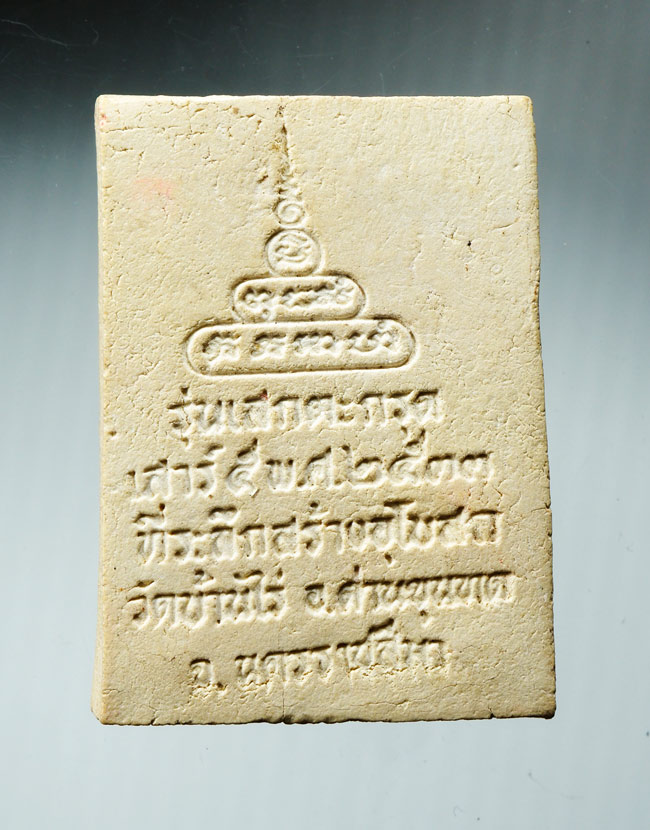 รุ่นเสกตะกรุด
เสาร์ ๕ พ.ศ.๒๕๓๓
ที่ระลึกสร้างอุโบสถ
วัดบ้านไร่ อ.ด่านขุนทด
จ. นครราชสีมา